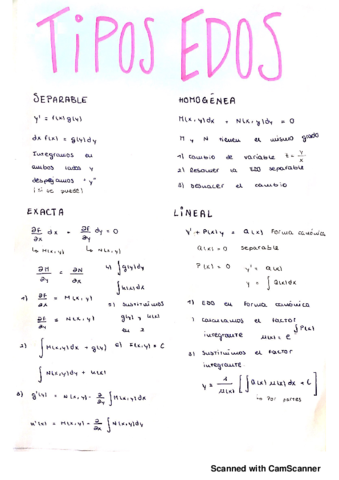 TIPOS EDOS
SEPARABLE
y' = f(x) g(y)
dx f(x) = g(y) dy
Integramos en
ambos lados y
despejamos "y"
(si se puede)
HOMOGÉNEA
M(x,y)dx + N(x,y)dy = 0
M y N tienen el mismo grado
1) cambio de variable t = y/x
2) Resolver la EDO separable
3) deshacer el cambio
EXACTA
∂F/∂x dx + ∂F/∂y dy = 0
↳ M(x,y) ↳ N(x,y)
∂M/∂y = ∂N/∂x
1) ∂F/∂x = M(x,y)
∂F/∂y = N(x,y)
2) ∫M(x,y)dx + g(y)
∫N(x,y)dy + h(x)
3) g'(y) = N(x,y) - ∂/∂y ∫M(x,y)dx
h'(x) = M(x,y) - ∂/∂x ∫N(x,y)dy
4) ∫g'(y)dy
∫h'(x)dx
5) sustituimos
g(y) y h(x)
en 2
6) F(x,y) = C
LINEAL
y' + P(x)y = Q(x) Forma canónica
Q(x) = 0 separable
P(x) = 0 y' = Q(x)
y = ∫Q(x)dx
1) EDO en forma canónica
calculamos el factor
integrante μ(x) = e^∫P(x)
sustituimos el factor
integrante
y = 1/μ(x) [∫Q(x) μ(x) dx + C]
↳ por partes
Scanned with CamScanner